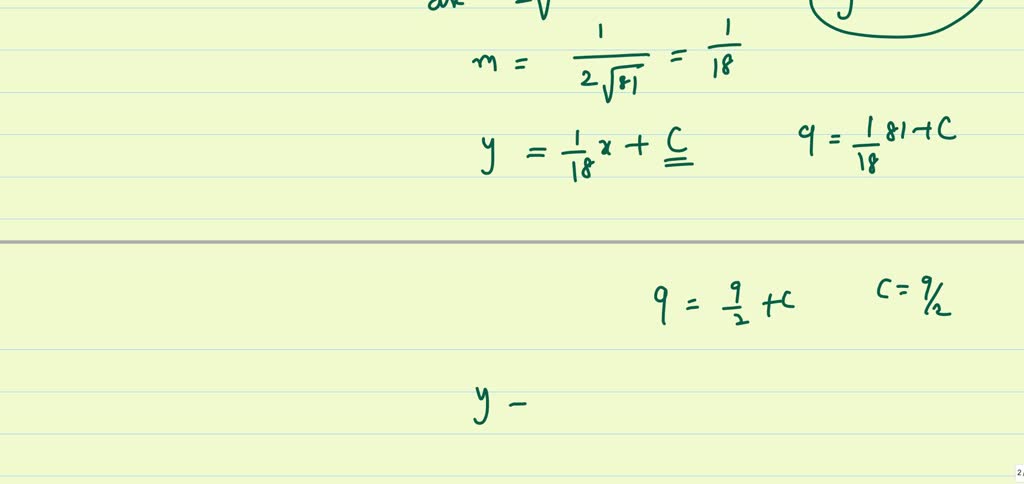 m = 1/(2√81) = 1/18
y = 1/18 x + C 9 = 1/18 81 + C
9 = 9/2 + C C = 9/2
y -